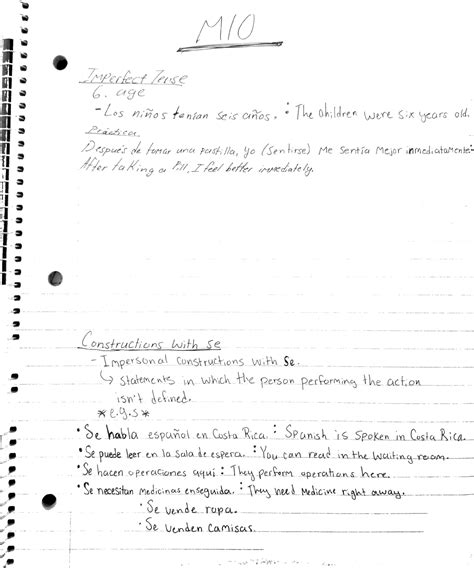 M10
Imperfect Tense
6. age
- Los niños tenían seis años. : The children were six years old.
Práctica
Después de tomar una pastilla, yo (sentirse) me sentía mejor inmediatamente:
After taking a pill, I feel better immediately.
Constructions with se
- Impersonal constructions with se.
↳ statements in which the person performing the action
isn't defined.
*e.g.s*
• Se habla español en Costa Rica. : Spanish is spoken in Costa Rica.
• Se puede leer en la sala de espera. : You can read in the waiting room.
• Se hacen operaciones aquí : They perform operations here.
• Se necesitan medicinas enseguida. : They need medicine right away.
• Se vende ropa.
• Se venden camisas.